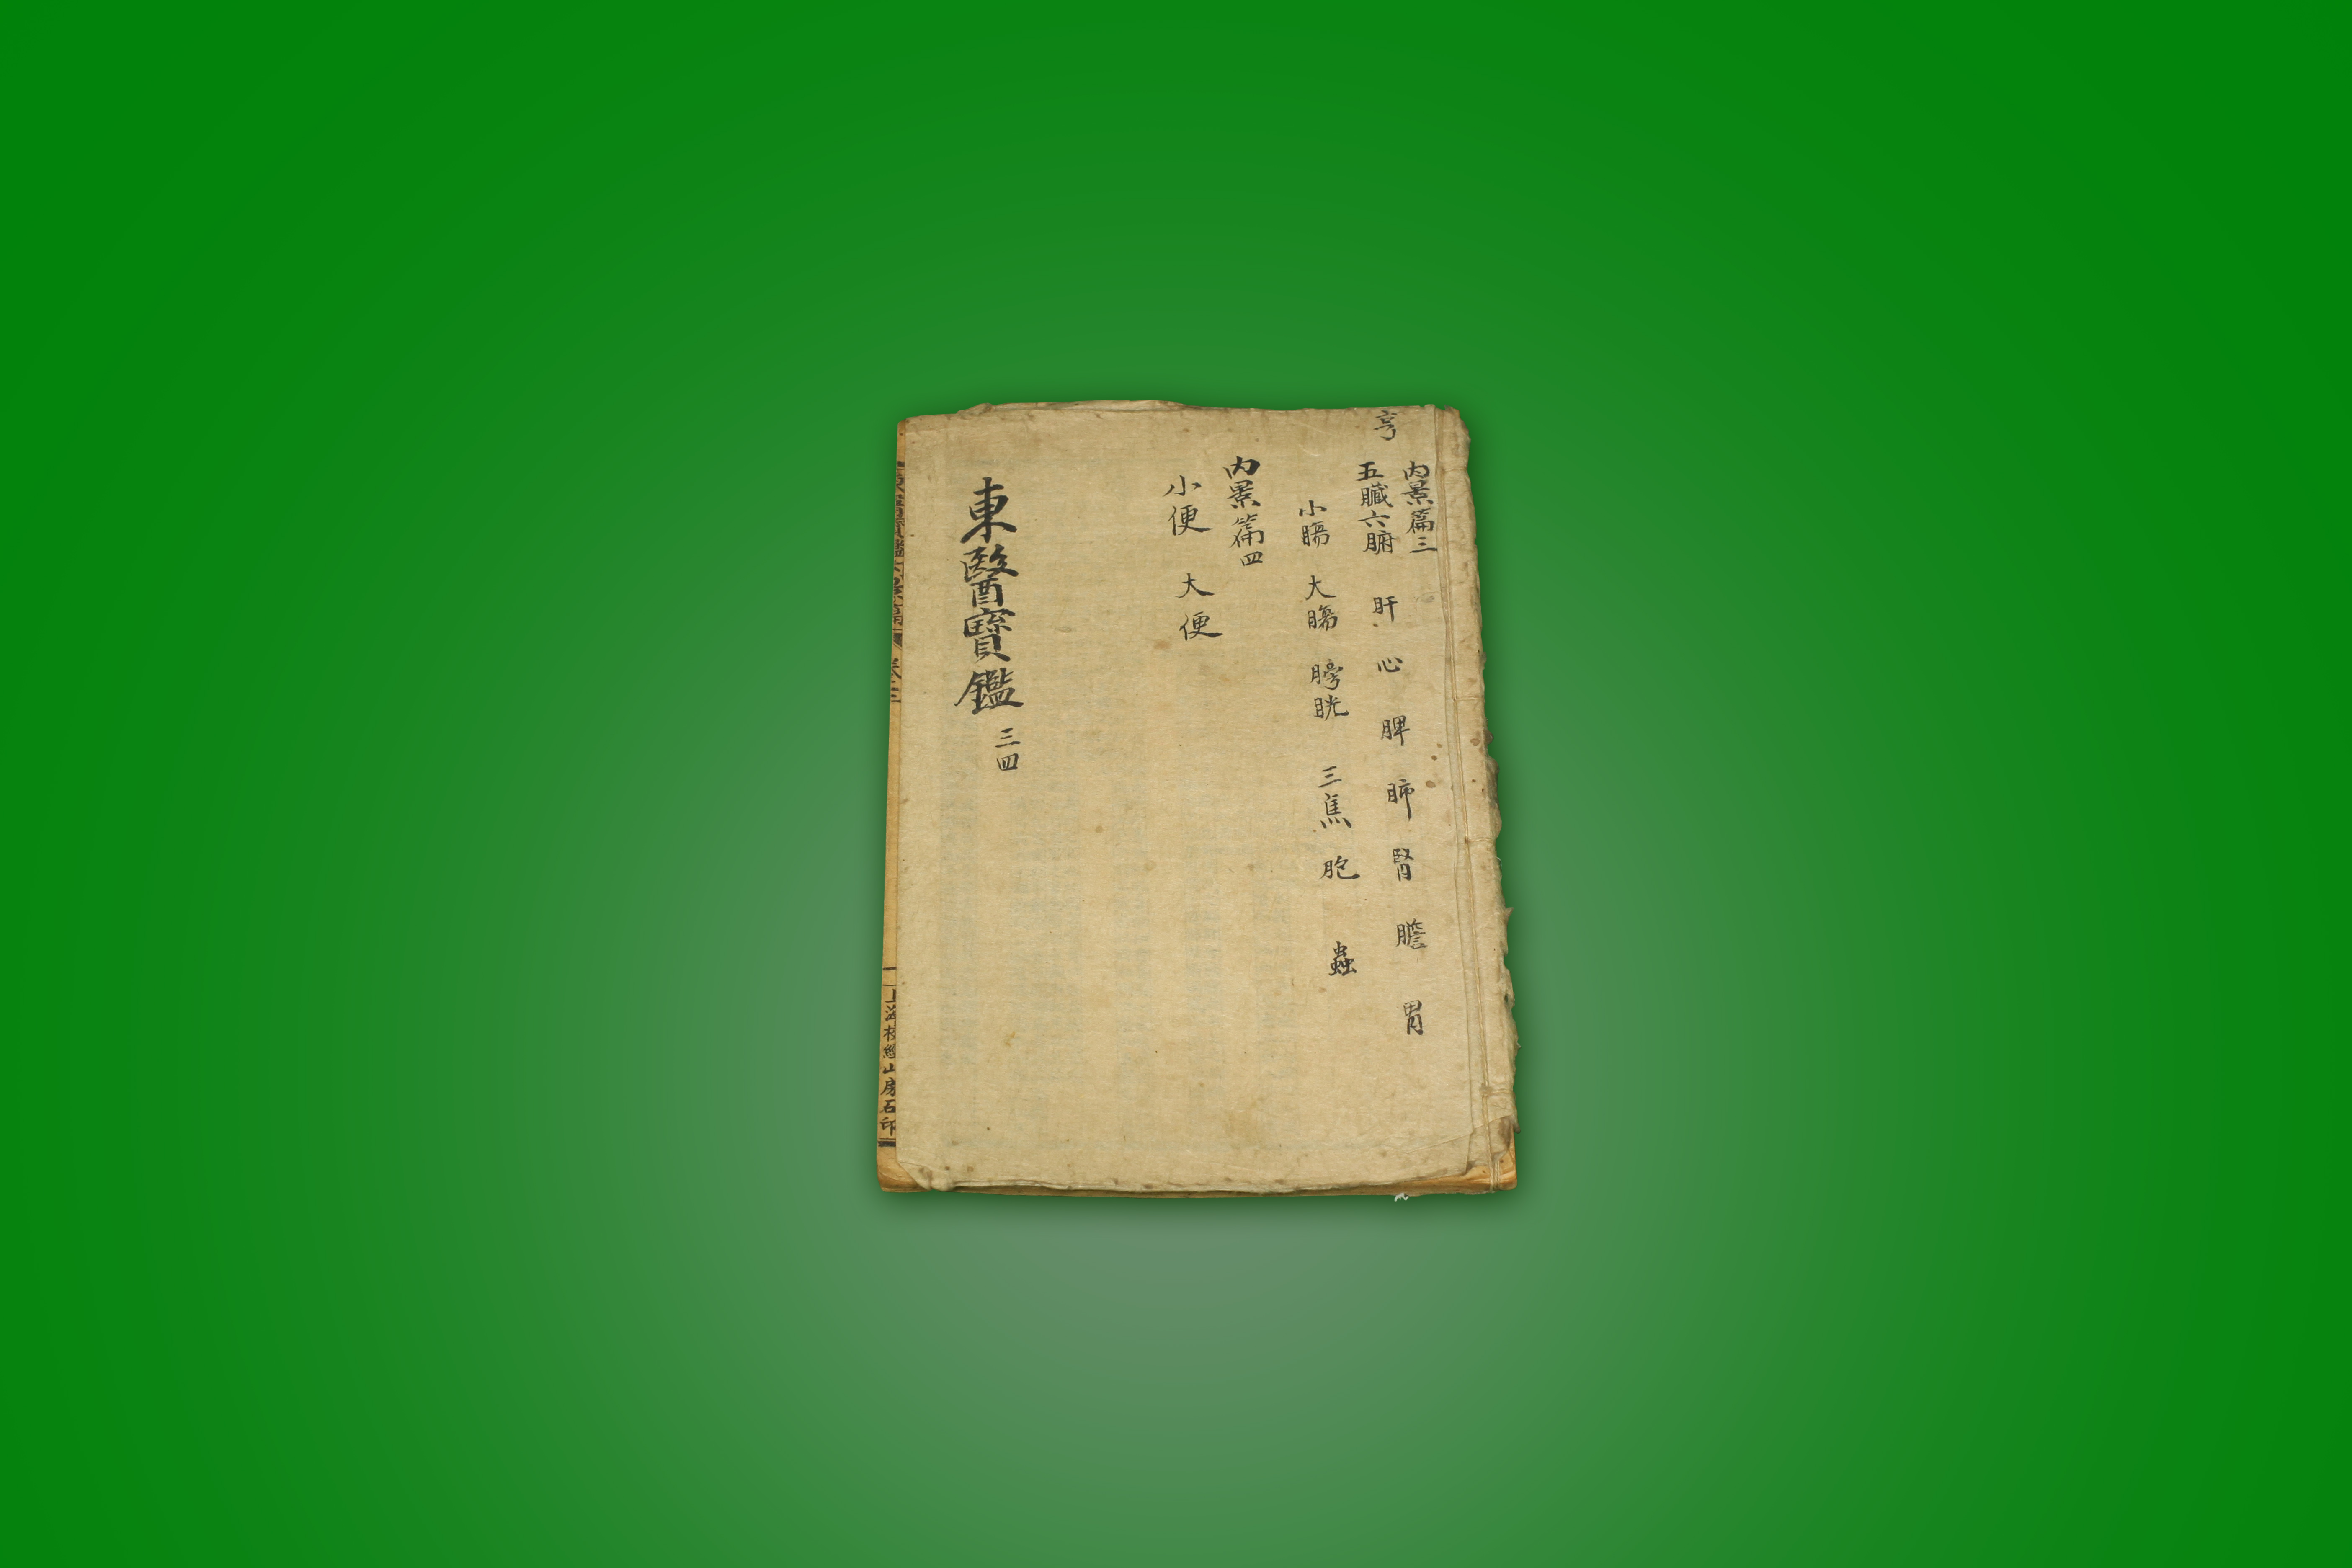 亨
內景篇三
五臟六腑 肝 心 脾 肺 腎 膽 胃
小膓 大膓 膀胱 三焦 胞 蟲
內景篇四
小便 大便
東醫寶鑑 三四
上海校經山房石印